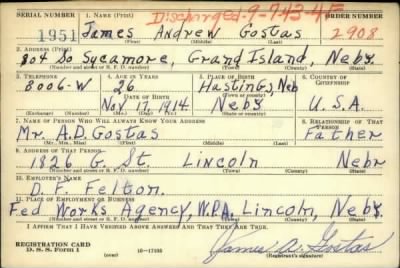 SERIAL NUMBER 1. NAME (Print) Discharged-9-7-43-45 ORDER NUMBER
1951 James Andrew Gostas 2908
(First) (Middle) (Last)
2. ADDRESS (Print)
804 So Sycamore, Grand Island, Nebr.
(Number and street or R. F. D. number) (Town) (County) (State)
3. TELEPHONE 4. AGE IN YEARS 5. PLACE OF BIRTH 6. COUNTRY OF CITIZENSHIP
8006-W 26 Hastings, Neb
DATE OF BIRTH (Town or county)
Nov 17, 1914 Nebr U.S.A.
(Exchange) (Number) (Mo.) (Day) (Yr.) (State or country)
7. NAME OF PERSON WHO WILL ALWAYS KNOW YOUR ADDRESS 8. RELATIONSHIP OF THAT PERSON
Mr. A.D. Gostas Father
(Mr., Mrs., Miss) (First) (Middle) (Last)
9. ADDRESS OF THAT PERSON
1826 G. St. Lincoln Nebr
(Number and street or R. F. D. number) (Town) (County) (State)
10. EMPLOYER'S NAME
D. F. Felton.
11. PLACE OF EMPLOYMENT OR BUSINESS
Fed Works Agency, W.P.A., Lincoln, Nebr.
(Number and street or R. F. D. number) (Town) (County) (State)
I AFFIRM THAT I HAVE VERIFIED ABOVE ANSWERS AND THAT THEY ARE TRUE.
REGISTRATION CARD James A. Gostas
D. S. S. Form 1 (over) 16-17105 (Registrant's signature)